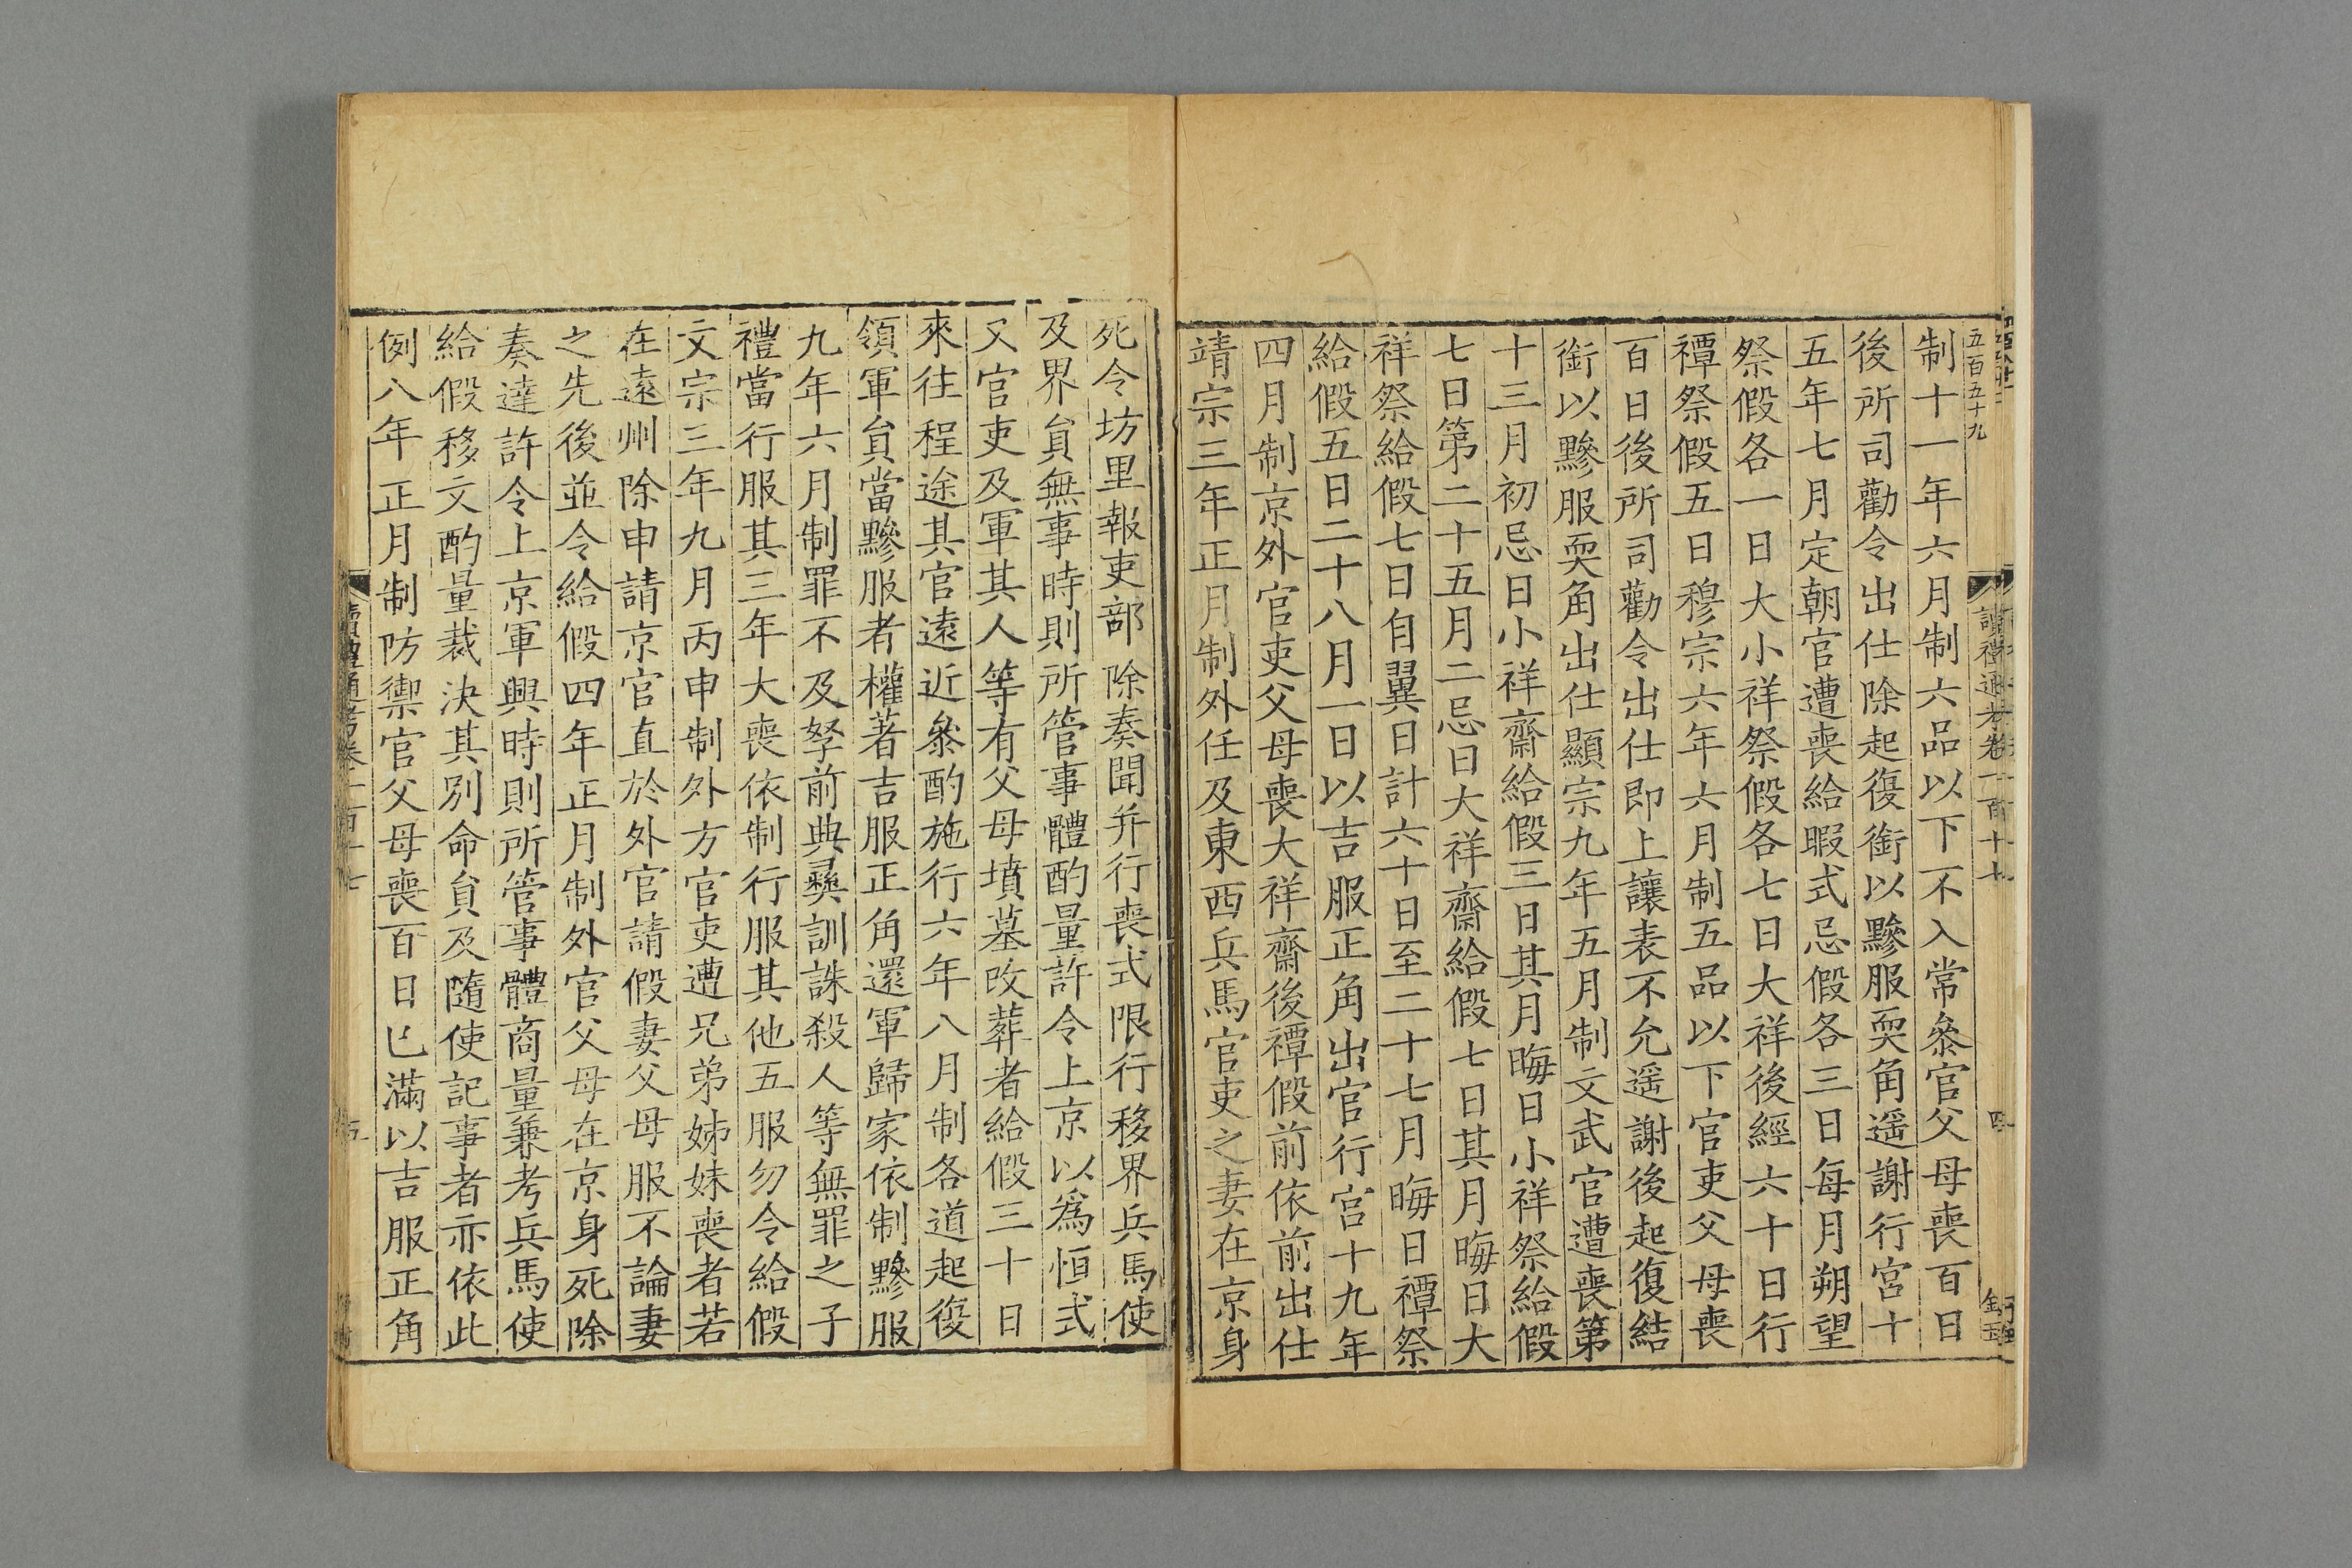 五百五十九
讀禮通考卷一百十七
四
制十一年六月制六品以下不入常叅官父母喪百日
後所司勸令出仕除起復銜以黲服耎角遥謝行宮十
五年七月定朝官遭喪給暇式忌假各三日每月朔望
祭假各一日大小祥祭假各七日大祥後經六十日行
禫祭假五日穆宗六年六月制五品以下官吏父母喪
百日後所司勸令出仕即上讓表不允遥謝後起復結
銜以黲服耎角出仕顯宗九年五月制文武官遭喪第
十三月初忌日小祥齋給假三日其月晦日小祥祭給假
七日第二十五月二忌日大祥齋給假七日其月晦日大
祥祭給假七日自翼日計六十日至二十七月晦日禫祭
給假五日二十八月一日以吉服正角出官行宮十九年
四月制京外官吏父母喪大祥齋後禫假前依前出仕
靖宗三年正月制外任及東西兵馬官吏之妻在京身
死令坊里報吏部除奏聞并行喪式限行移界兵馬使
及界貟無事時則所管事體酌量許令上京以爲恒式
又官吏及軍其人等有父母墳墓改葬者給假三十日
來往程途其官遠近叅酌施行六年八月制各道起復
領軍貟當黲服者權著吉服正角還軍歸家依制黲服
九年六月制罪不及孥前典彛訓誅殺人等無罪之子
禮當行服其三年大喪依制行服其他五服勿令給假
文宗三年九月丙申制外方官吏遭兄弟姊妹喪者若
在遠州除申請京官直於外官請假妻父母服不論妻
之先後並令給假四年正月制外官父母在京身死除
奏達許令上京軍興時則所管事體商量兼考兵馬使
給假移文酌量裁決其別命貟及隨使記事者亦依此
例八年正月制防禦官父母喪百日已滿以吉服正角
讀禮通考卷一百十七
五